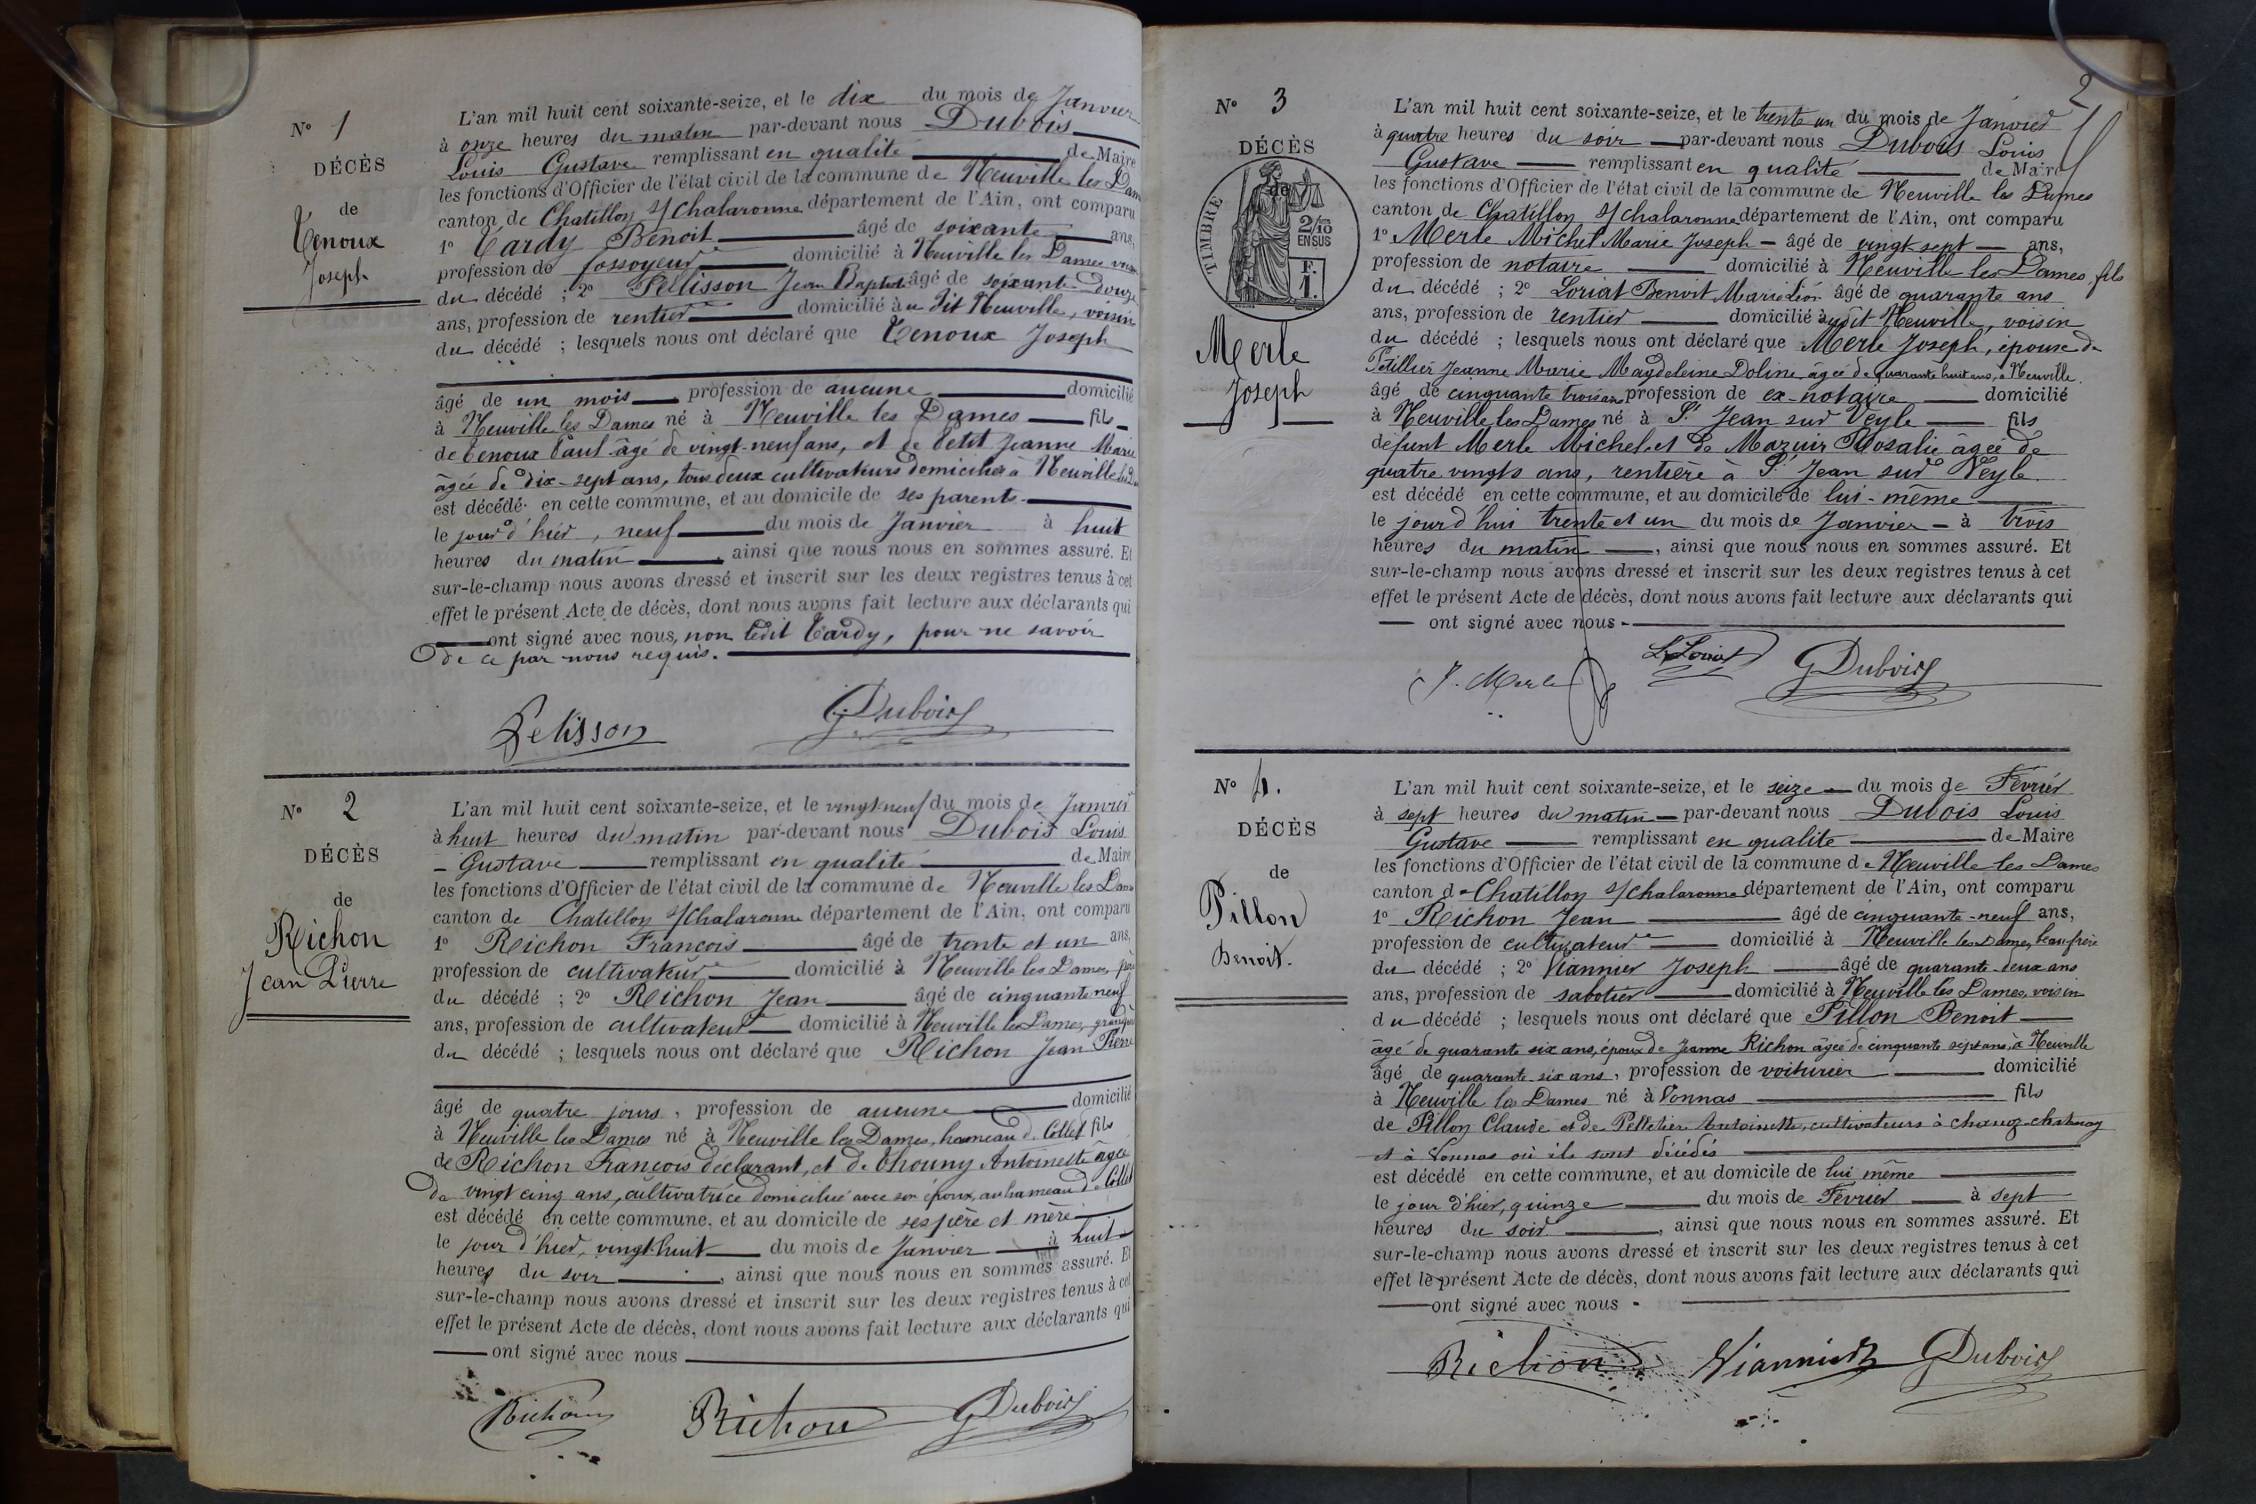 N° 1
DÉCÈS
de
Tenoux
Joseph
L'an mil huit cent soixante-seize, et le dix du mois de Janvier
à onze heures du matin par-devant nous Dubois
Louis Gustave remplissant en qualité de Maire
les fonctions d'Officier de l'état civil de la commune de Neuville les Dam
canton de Chatillon s/ Chalaronne département de l'Ain, ont comparu
1° Tardy Benoit âgé de soixante ans,
profession de fossoyeur domicilié à Neuville les Dames voisin
du décédé ; 2° Pelisson Jean Baptiste âgé de soixante-douze
ans, profession de rentier domicilié au dit Neuville, voisin
du décédé ; lesquels nous ont déclaré que Tenoux Joseph
âgé de un mois profession de aucune domicilié
à Neuville les Dames né à Neuville les Dames fils
de Tenoux Paul âgé de vingt-neuf ans, et de Petit Jeanne Marie
âgée de dix-sept ans, tous deux cultivateurs domiciliés à Neuville les D
est décédé en cette commune, et au domicile de ses parents.
le jour d'hier, neuf du mois de Janvier à huit
heures du matin, ainsi que nous nous en sommes assuré. Et
sur-le-champ nous avons dressé et inscrit sur les deux registres tenus à cet
effet le présent Acte de décès, dont nous avons fait lecture aux déclarants qui
ont signé avec nous, non ledit Tardy, pour ne savoir
de ce par nous requis.
Pelisson GDubois
N° 2
DÉCÈS
de
Richon
Jean Pierre
L'an mil huit cent soixante-seize, et le vingt neuf du mois de Janvier
à huit heures du matin par-devant nous Dubois Louis
Gustave remplissant en qualité de Maire
les fonctions d'Officier de l'état civil de la commune de Neuville les Dam
canton de Chatillon s/ Chalaronne département de l'Ain, ont comparu
1° Richon François âgé de trente et un ans,
profession de cultivateur domicilié à Neuville les Dames, père
du décédé ; 2° Richon Jean âgé de cinquante neuf
ans, profession de cultivateur domicilié à Neuville les Dames, grand père
du décédé ; lesquels nous ont déclaré que Richon Jean Pierre
âgé de quatre jours, profession de aucune domicilié
à Neuville les Dames né à Neuville les Dames, hameau de Collet fils
de Richon François déclarant, et de Chouny Antoinette âgée
de vingt cinq ans, cultivatrice domiciliée avec son époux, au hameau de Collet
est décédé en cette commune, et au domicile de ses père et mère
le jour d'hier, vingt huit du mois de Janvier à huit
heures du soir, ainsi que nous nous en sommes assuré. Et
sur-le-champ nous avons dressé et inscrit sur les deux registres tenus à cet
effet le présent Acte de décès, dont nous avons fait lecture aux déclarants qui
ont signé avec nous
Richon Richon GDubois
2
N° 3
DÉCÈS
de
TIMBRE
2/10
EN SUS
F.
1.
Merle
Joseph
L'an mil huit cent soixante-seize, et le trente un du mois de Janvier
à quatre heures du soir par-devant nous Dubois Louis
Gustave remplissant en qualité de Maire
les fonctions d'Officier de l'état civil de la commune de Neuville les Dames
canton de Chatillon s/ Chalaronne département de l'Ain, ont comparu
1° Merle Michel Marie Joseph - âgé de vingt sept ans,
profession de notaire domicilié à Neuville les Dames, fils
du décédé ; 2° Loriat Benoit Marie Léon âgé de quarante ans
ans, profession de rentier domicilié audit Neuville, voisin
du décédé ; lesquels nous ont déclaré que Merle Joseph, épouse de
Petillier Jeanne Marie Magdeleine Doline, âgée de quarante huit ans, à Neuville.
âgé de cinquante trois ans profession de ex-notaire domicilié
à Neuville les Dames né à St Jean sur Veyle fils
défunt Merle Michel, et de Mazuir Rosalie âgée de
quatre vingts ans, rentière à St Jean sur Veyle.
est décédé en cette commune, et au domicile de lui-même
le jourd'hui trente et un du mois de Janvier - à trois
heures du matin, ainsi que nous nous en sommes assuré. Et
sur-le-champ nous avons dressé et inscrit sur les deux registres tenus à cet
effet le présent Acte de décès, dont nous avons fait lecture aux déclarants qui
ont signé avec nous -
J. Merle L Loriat GDubois
N° 4.
DÉCÈS
de
Pillon
Benoit.
L'an mil huit cent soixante-seize, et le seize du mois de Février
à sept heures du matin par-devant nous Dubois Louis
Gustave remplissant en qualité de Maire
les fonctions d'Officier de l'état civil de la commune de Neuville les Dames
canton de Chatillon s/ Chalaronne département de l'Ain, ont comparu
1° Richon Jean âgé de cinquante-neuf ans,
profession de cultivateur domicilié à Neuville les Dames, beau frère
du décédé ; 2° Viannier Joseph âgé de quarante-deux ans
ans, profession de sabotier domicilié à Neuville les Dames, voisin
du décédé ; lesquels nous ont déclaré que Pillon Benoit
âgé de quarante six ans, époux de Jeanne Richon âgée de cinquante sept ans, à Neuville
âgé de quarante-six ans, profession de voiturier domicilié
à Neuville les Dames né à Vonnas fils
de Pillon Claude et de Pelletier Antoinette, cultivateurs à Chanoz-chatenay
et à Vonnas où ils sont décédés
est décédé en cette commune, et au domicile de lui même
le jour d'hier, quinze du mois de Février à sept
heures du soir, ainsi que nous nous en sommes assuré. Et
sur-le-champ nous avons dressé et inscrit sur les deux registres tenus à cet
effet le présent Acte de décès, dont nous avons fait lecture aux déclarants qui
ont signé avec nous -
Richon Viannier GDubois